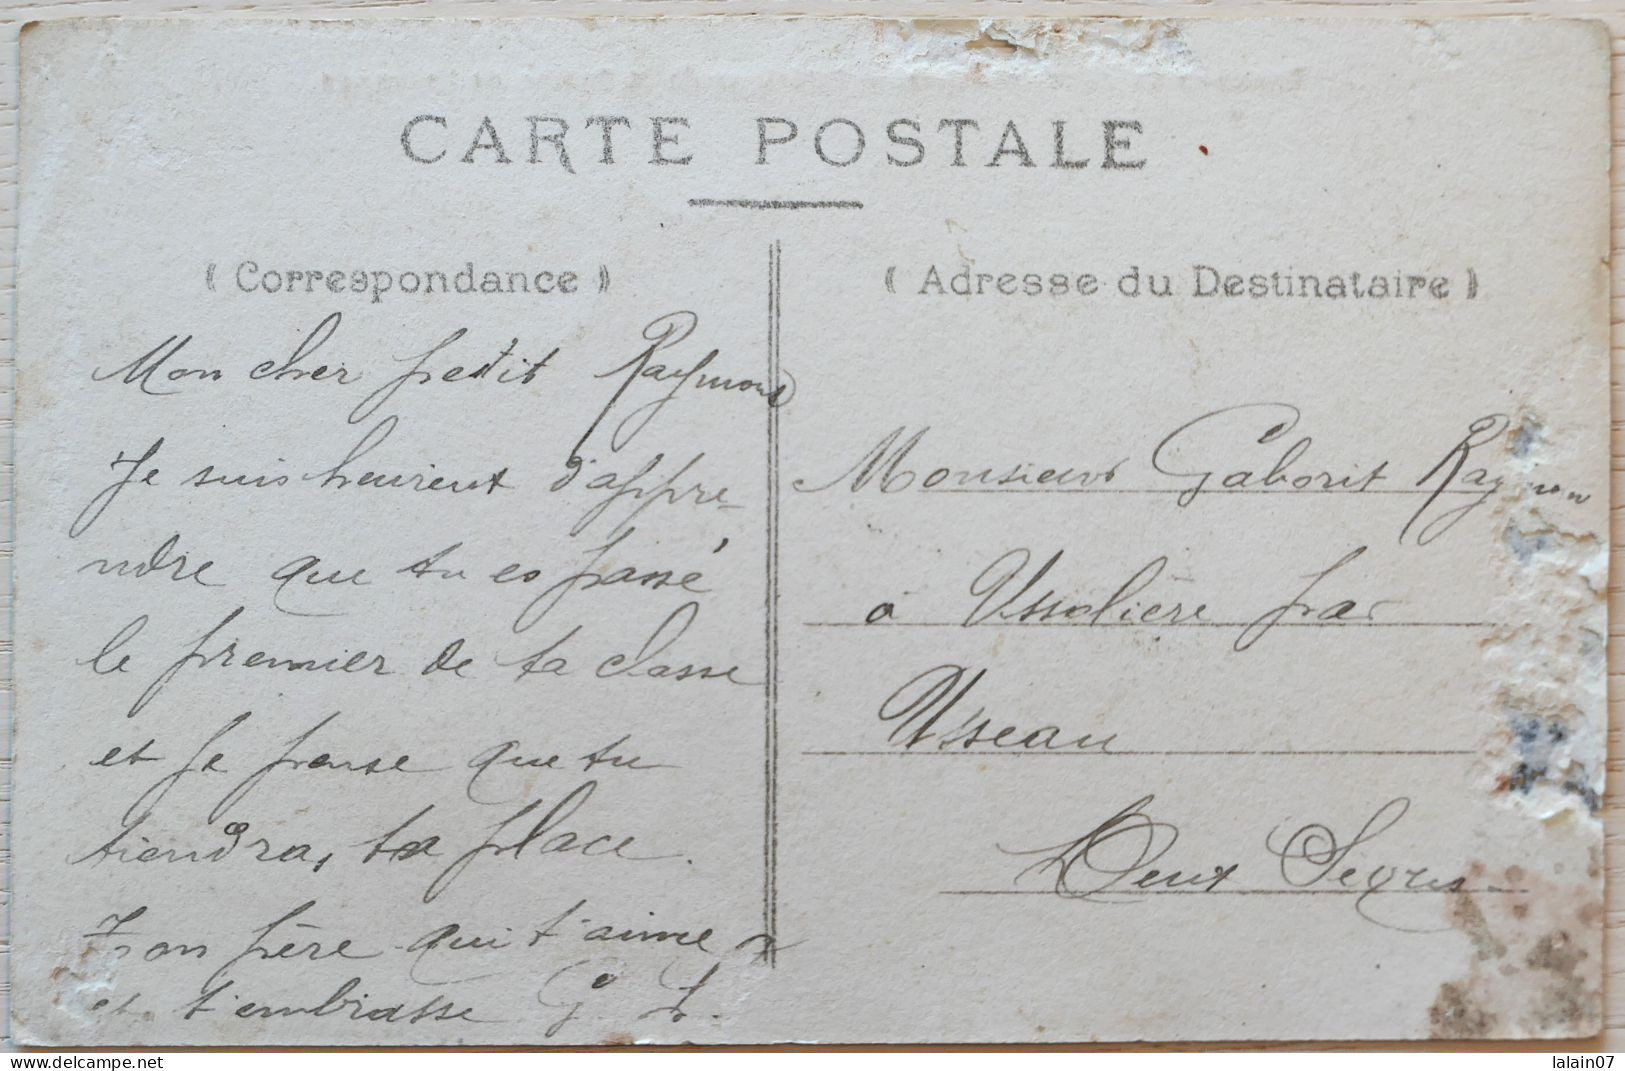 CARTE POSTALE
( Correspondance )
Mon cher petit Raymond
Je suis heureux d'appre-
ndre que tu es passé
le premier de ta classe
et je pense que tu
tiendra, ta place.
Ton père qui t'aime
et t'embrasse G. L.
( Adresse du Destinataire )
Monsieur Gaborit Raymon
à Ussolière par
Usseau
Deux Sèvres
lalain07